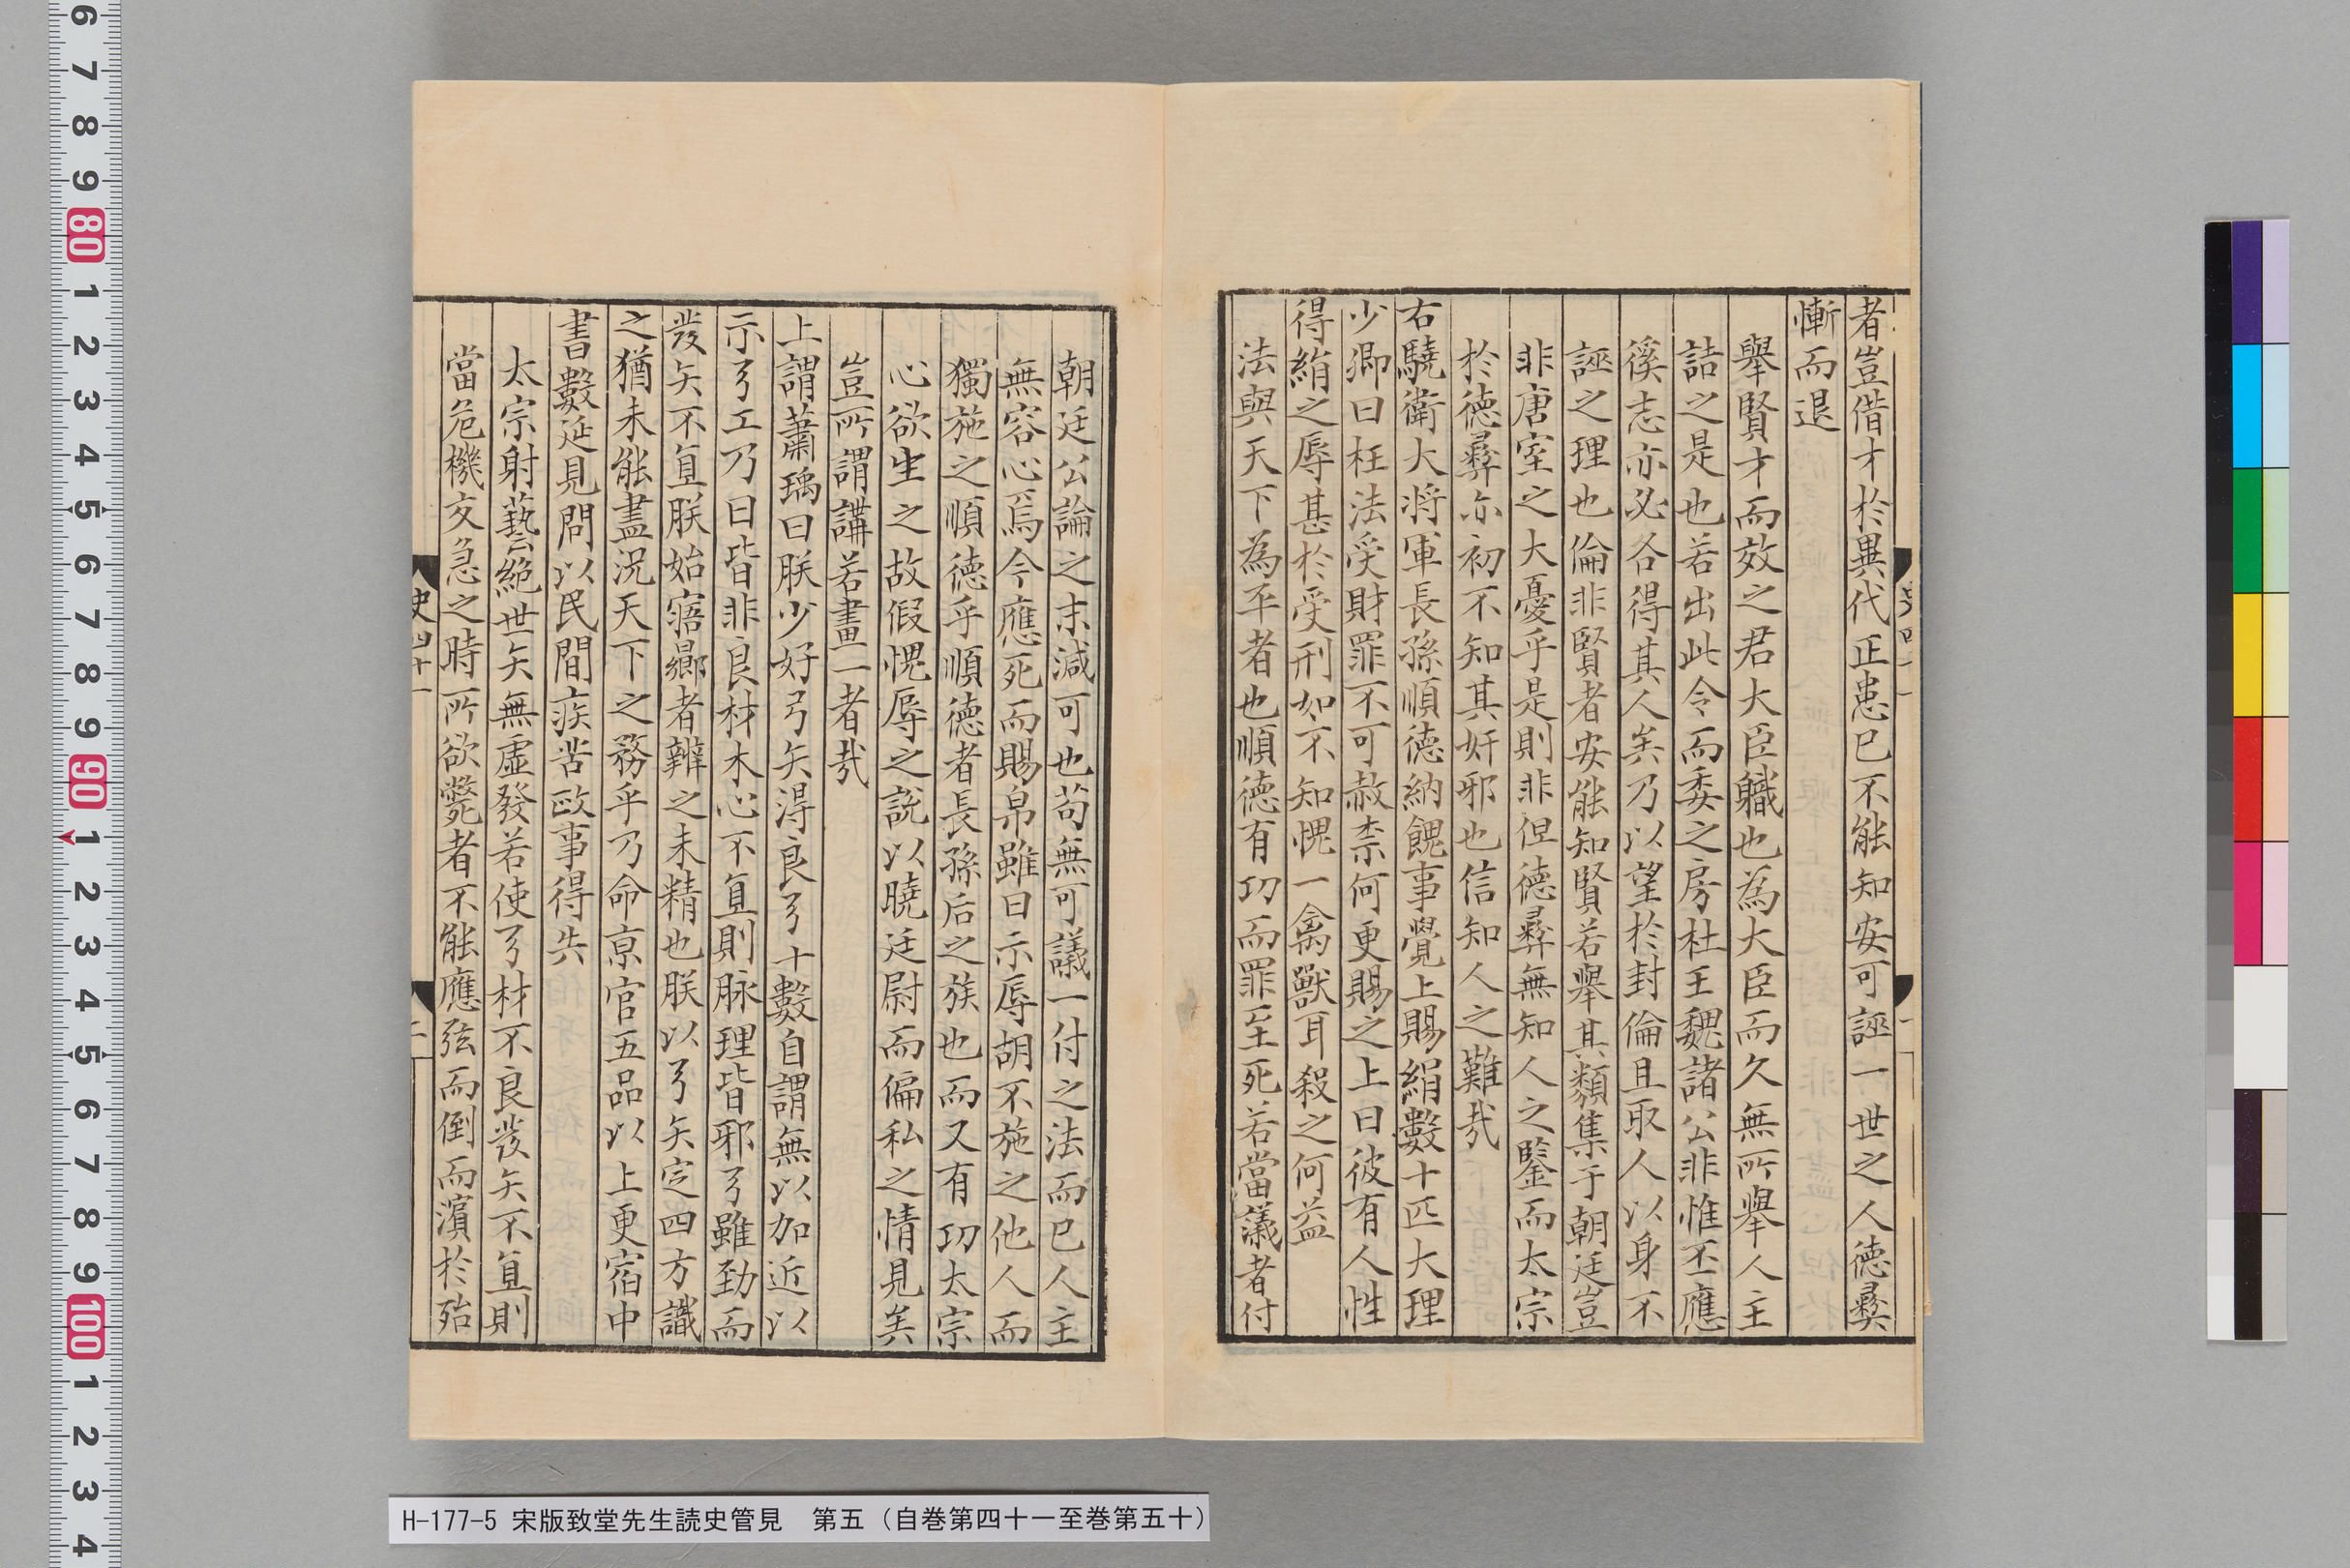 者豈借才於異代正患巳不能知安可誣一世之人德彝
慚而退
舉賢才而效之君大臣職也為大臣而久無所舉人主
詰之是也若出此令而委之房杜王魏諸公非惟丕應
徯志亦必各得其人矣乃以望於封倫且取人以身不
誣之理也倫非賢者安能知賢若舉其類集于朝廷豈
非唐室之大憂乎是則非但德彝無知人之鑒而太宗
於德彝亦初不知其奸邪也信知人之難哉
右驍衛大將軍長孫順德納餽事覺上賜絹數十匹大理
少卿曰枉法受財罪不可赦柰何更賜之上曰彼有人性
得絹之辱甚於受刑如不知愧一禽獸耳殺之何益
法與天下為平者也順德有功而罪至死若當議者付
朝廷公論之末減可也苟無可議一付之法而巳人主
無容心焉今應死而賜帛雖曰示辱胡不施之他人而
獨施之順德乎順德者長孫后之族也而又有功太宗
心欲生之故假愧辱之說以曉廷尉而偏私之情見矣
豈所謂講若畫一者哉
上謂蕭瑀曰朕少好弓矢得良弓十數自謂無以加近以
示弓工乃曰皆非良材木心不直則脉理皆邪弓雖勁而
發矢不直朕始寤曏者辨之未精也朕以弓矢定四方識
之猶未能盡況天下之務乎乃命京官五品以上更宿中
書數延見問以民間疾苦政事得失
太宗射藝絕世矢無虛發若使弓材不良發矢不直則
當危機交急之時所欲斃者不能應弦而倒而濱於殆
史四十一
二
H-177-5 宋版致堂先生読史管見 第五（自巻第四十一至巻第五十）